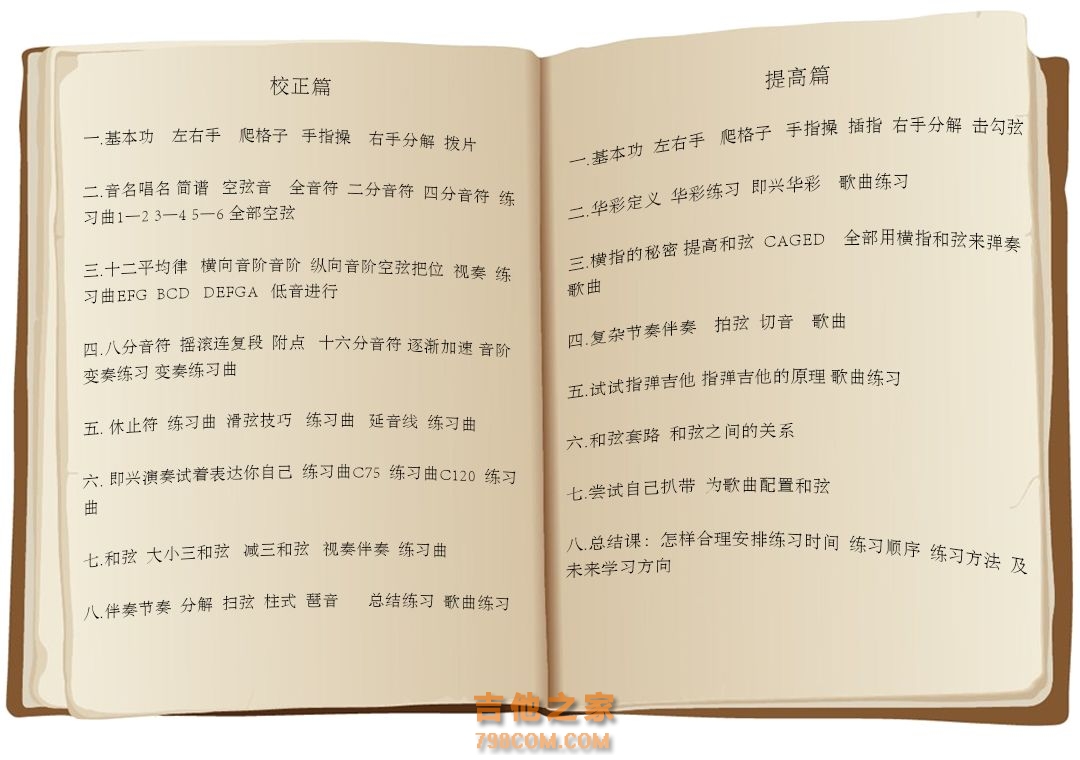 校正篇
一.基本功 左右手 爬格子 手指操 右手分解 拨片
二.音名唱名 简谱 空弦音 全音符 二分音符 四分音符 练
习曲1—2 3—4 5—6 全部空弦
三.十二平均律 横向音阶音阶 纵向音阶空弦把位 视奏 练
习曲EFG BCD DEFGA 低音进行
四.八分音符 摇滚连复段 附点 十六分音符 逐渐加速 音阶
变奏练习 变奏练习曲
五. 休止符 练习曲 滑弦技巧 练习曲 延音线 练习曲
六. 即兴演奏试着表达你自己 练习曲C75 练习曲C120 练习
曲
七.和弦 大小三和弦 减三和弦 视奏伴奏 练习曲
八.伴奏节奏 分解 扫弦 柱式 琶音 总结练习 歌曲练习
提高篇
一.基本功 左右手 爬格子 手指操 插指 右手分解 击勾弦
二.华彩定义 华彩练习 即兴华彩 歌曲练习
三.横指的秘密 提高和弦 CAGED 全部用横指和弦来弹奏
歌曲
四.复杂节奏伴奏 拍弦 切音 歌曲
五.试试指弹吉他 指弹吉他的原理 歌曲练习
六.和弦套路 和弦之间的关系
七.尝试自己扒带 为歌曲配置和弦
八.总结课：怎样合理安排练习时间 练习顺序 练习方法 及
未来学习方向
吉他之家
798COM.COM